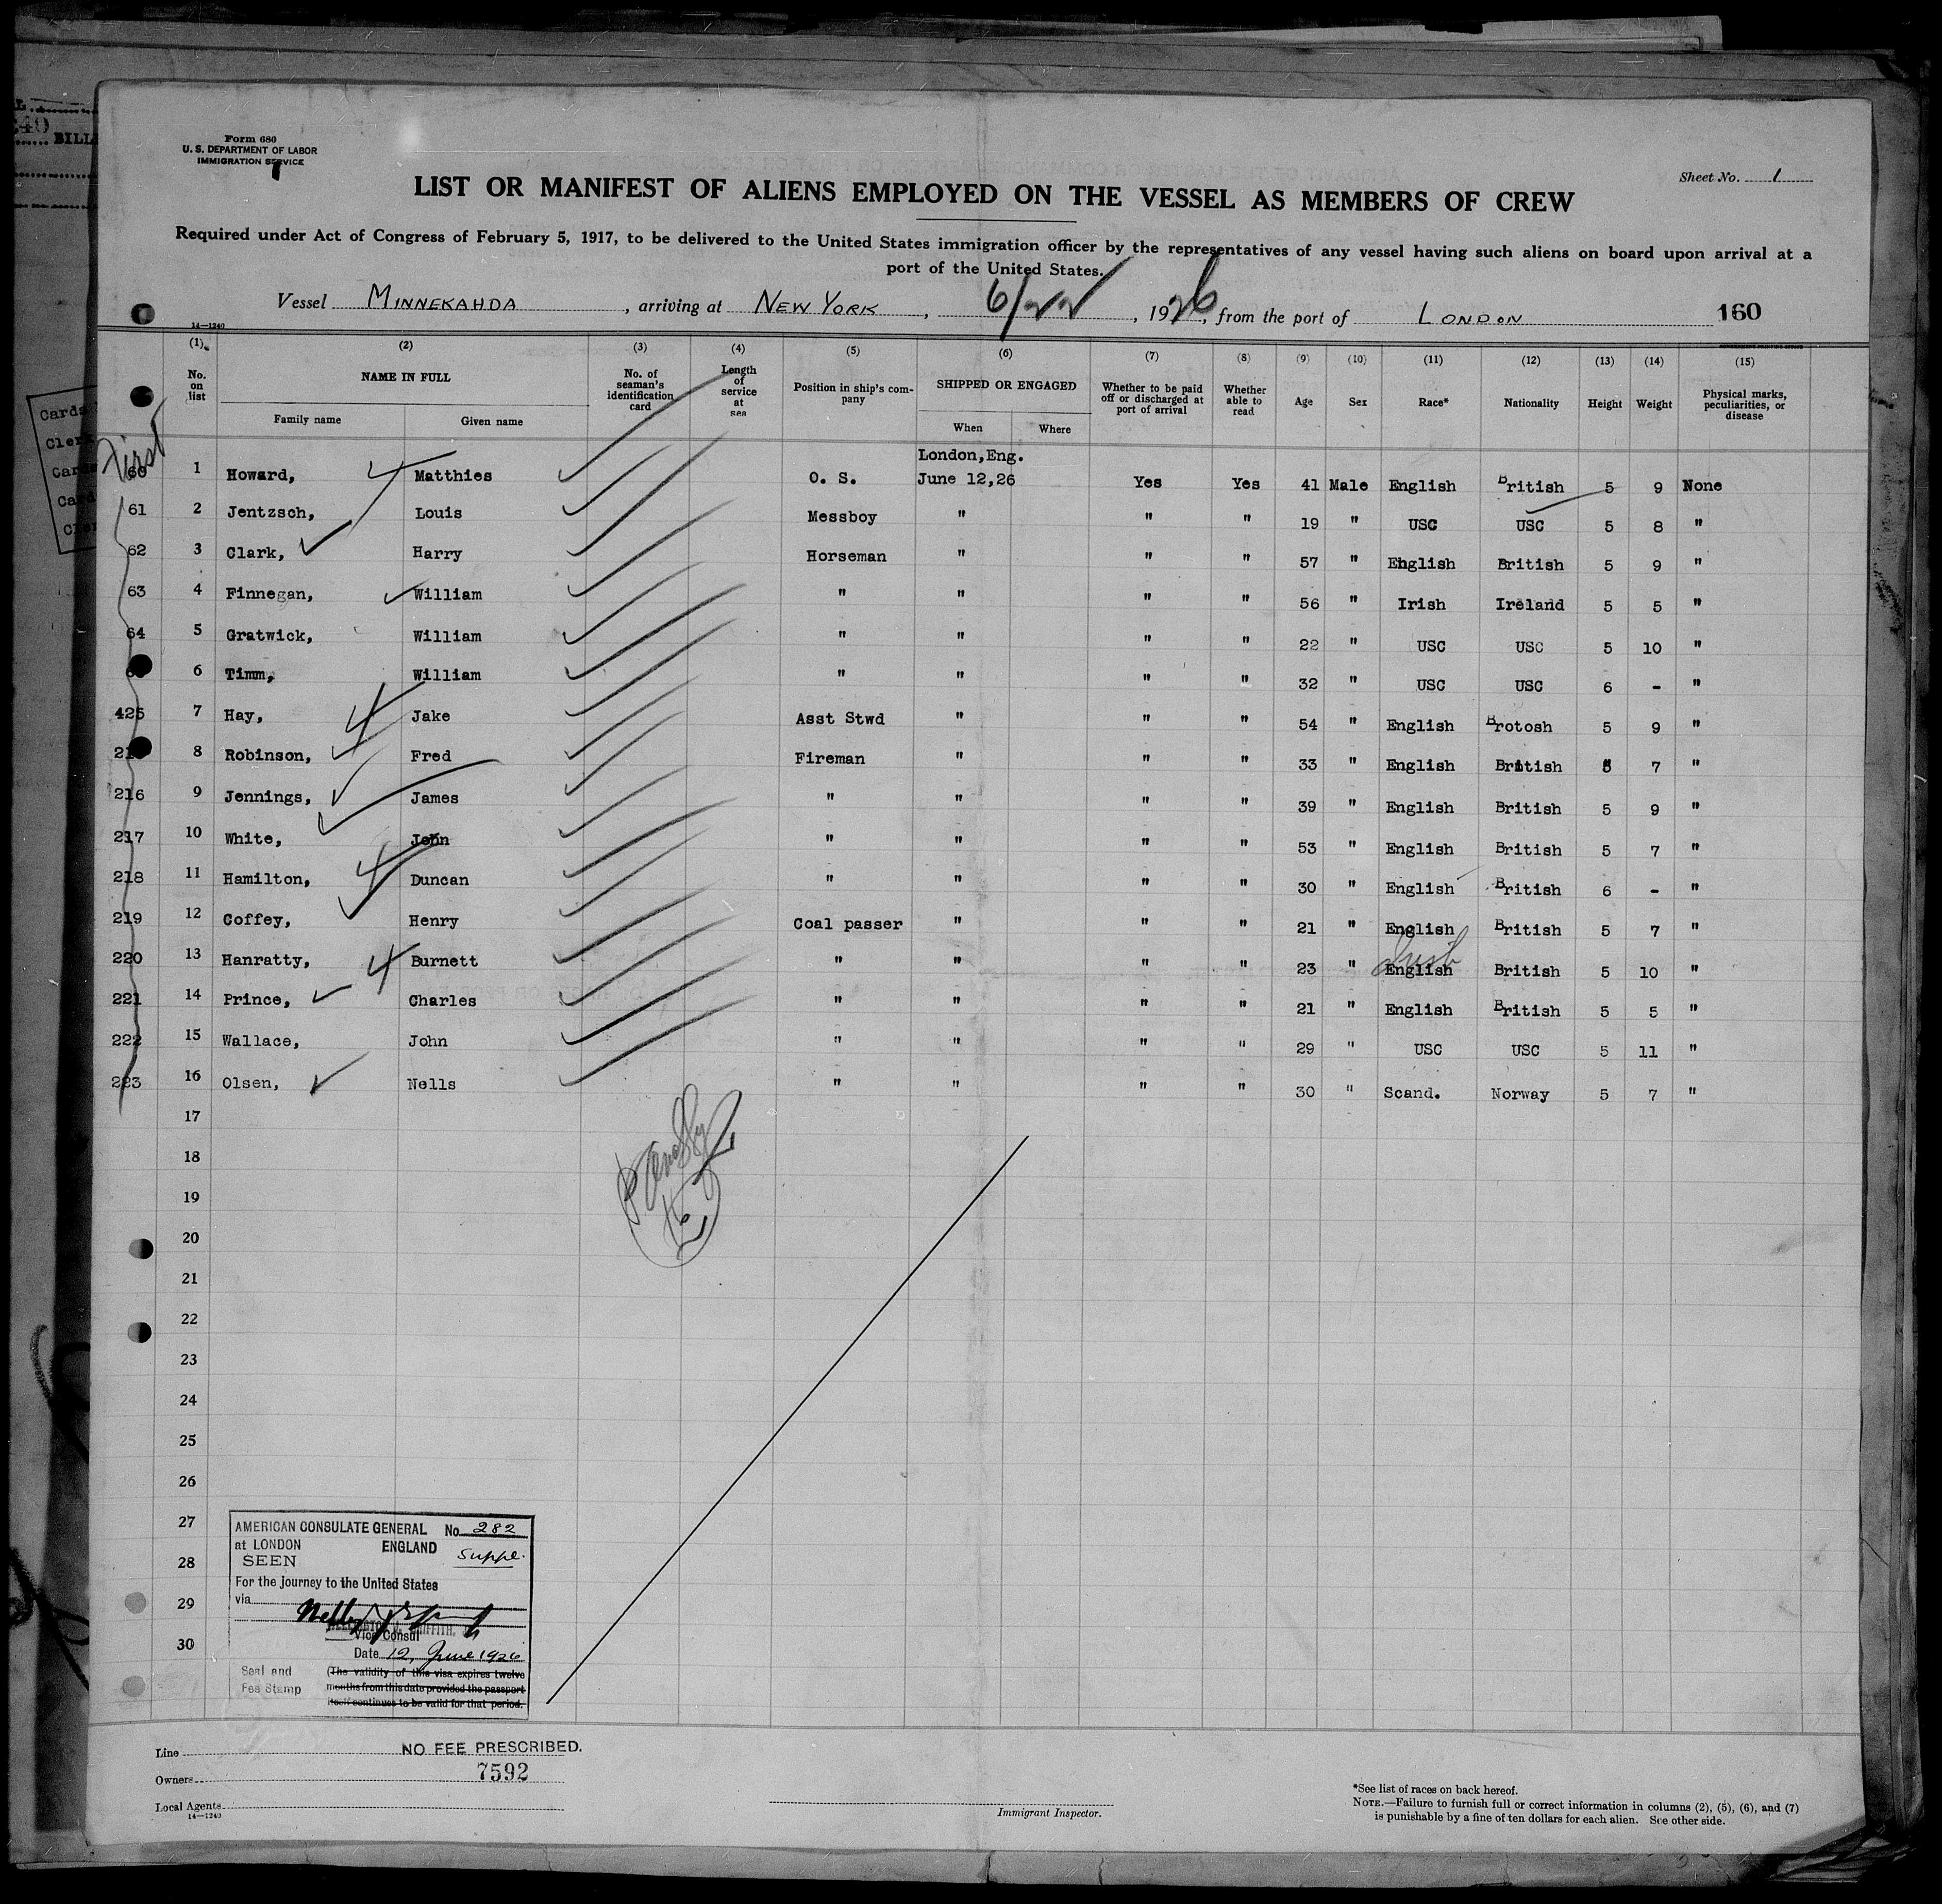 L
340 BILL
Cards
Clerk
Cards
Card
Cler
Form 680
U. S. DEPARTMENT OF LABOR
IMMIGRATION SERVICE
Sheet No. 1
LIST OR MANIFEST OF ALIENS EMPLOYED ON THE VESSEL AS MEMBERS OF CREW
Required under Act of Congress of February 5, 1917, to be delivered to the United States immigration officer by the representatives of any vessel having such aliens on board upon arrival at a
port of the United States.
Vessel MINNEKAHDA, arriving at NEW YORK, 6/22, 1926, from the port of LONDON 160
14—1240
(1) (2) (3) (4) (5) (6) (7) (8) (9) (10) (11) (12) (13) (14) (15)
No. on list NAME IN FULL Family name Given name No. of seaman's identification card Length of service at sea Position in ship's company SHIPPED OR ENGAGED When Where Whether to be paid off or discharged at port of arrival Whether able to read Age Sex Race* Nationality Height Weight Physical marks, peculiarities, or disease
First
London, Eng.
60 1 Howard, Matthies O. S. June 12,26 Yes Yes 41 Male English British 5 9 None
61 2 Jentzsch, Louis Messboy " " " 19 " USC USC 5 8 "
62 3 Clark, Harry Horseman " " " 57 " English British 5 9 "
63 4 Finnegan, William " " " " 56 " Irish Ireland 5 5 "
64 5 Gratwick, William " " " " 22 " USC USC 5 10 "
6 Timm, William " " " " 32 " USC USC 6 - "
425 7 Hay, Jake Asst Stwd " " " 54 " English Brotosh 5 9 "
8 Robinson, Fred Fireman " " " 33 " English British 5 7 "
216 9 Jennings, James " " " " 39 " English British 5 9 "
217 10 White, John " " " " 53 " English British 5 7 "
218 11 Hamilton, Duncan " " " " 30 " English British 6 - "
219 12 Coffey, Henry Coal passer " " " 21 " English British 5 7 "
220 13 Hanratty, Burnett " " " " 23 " English Irish British 5 10 "
221 14 Prince, Charles " " " " 21 " English British 5 5 "
222 15 Wallace, John " " " " 29 " USC USC 5 11 "
223 16 Olsen, Nells " " " " 30 " Scand. Norway 5 7 "
17
18
19
20
21
22
23
24
25
26
27
28
29
30
AMERICAN CONSULATE GENERAL No. 282
at LONDON ENGLAND suppl.
SEEN
For the journey to the United States
via
Vice Consul
Date 12, June 1926
Seal and (The validity of this visa expires twelve
Fee Stamp months from this date provided the passport
itself continues to be valid for that period.
Line NO FEE PRESCRIBED.
Owners 7592
Local Agents
14—1240
Immigrant Inspector.
*See list of races on back hereof.
NOTE.—Failure to furnish full or correct information in columns (2), (5), (6), and (7)
is punishable by a fine of ten dollars for each alien. See other side.